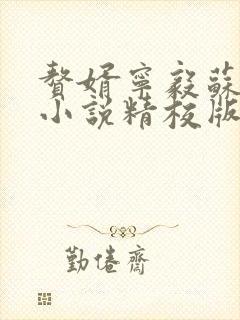 贅婿寧毅蘇
小說精校版
勤倦齋